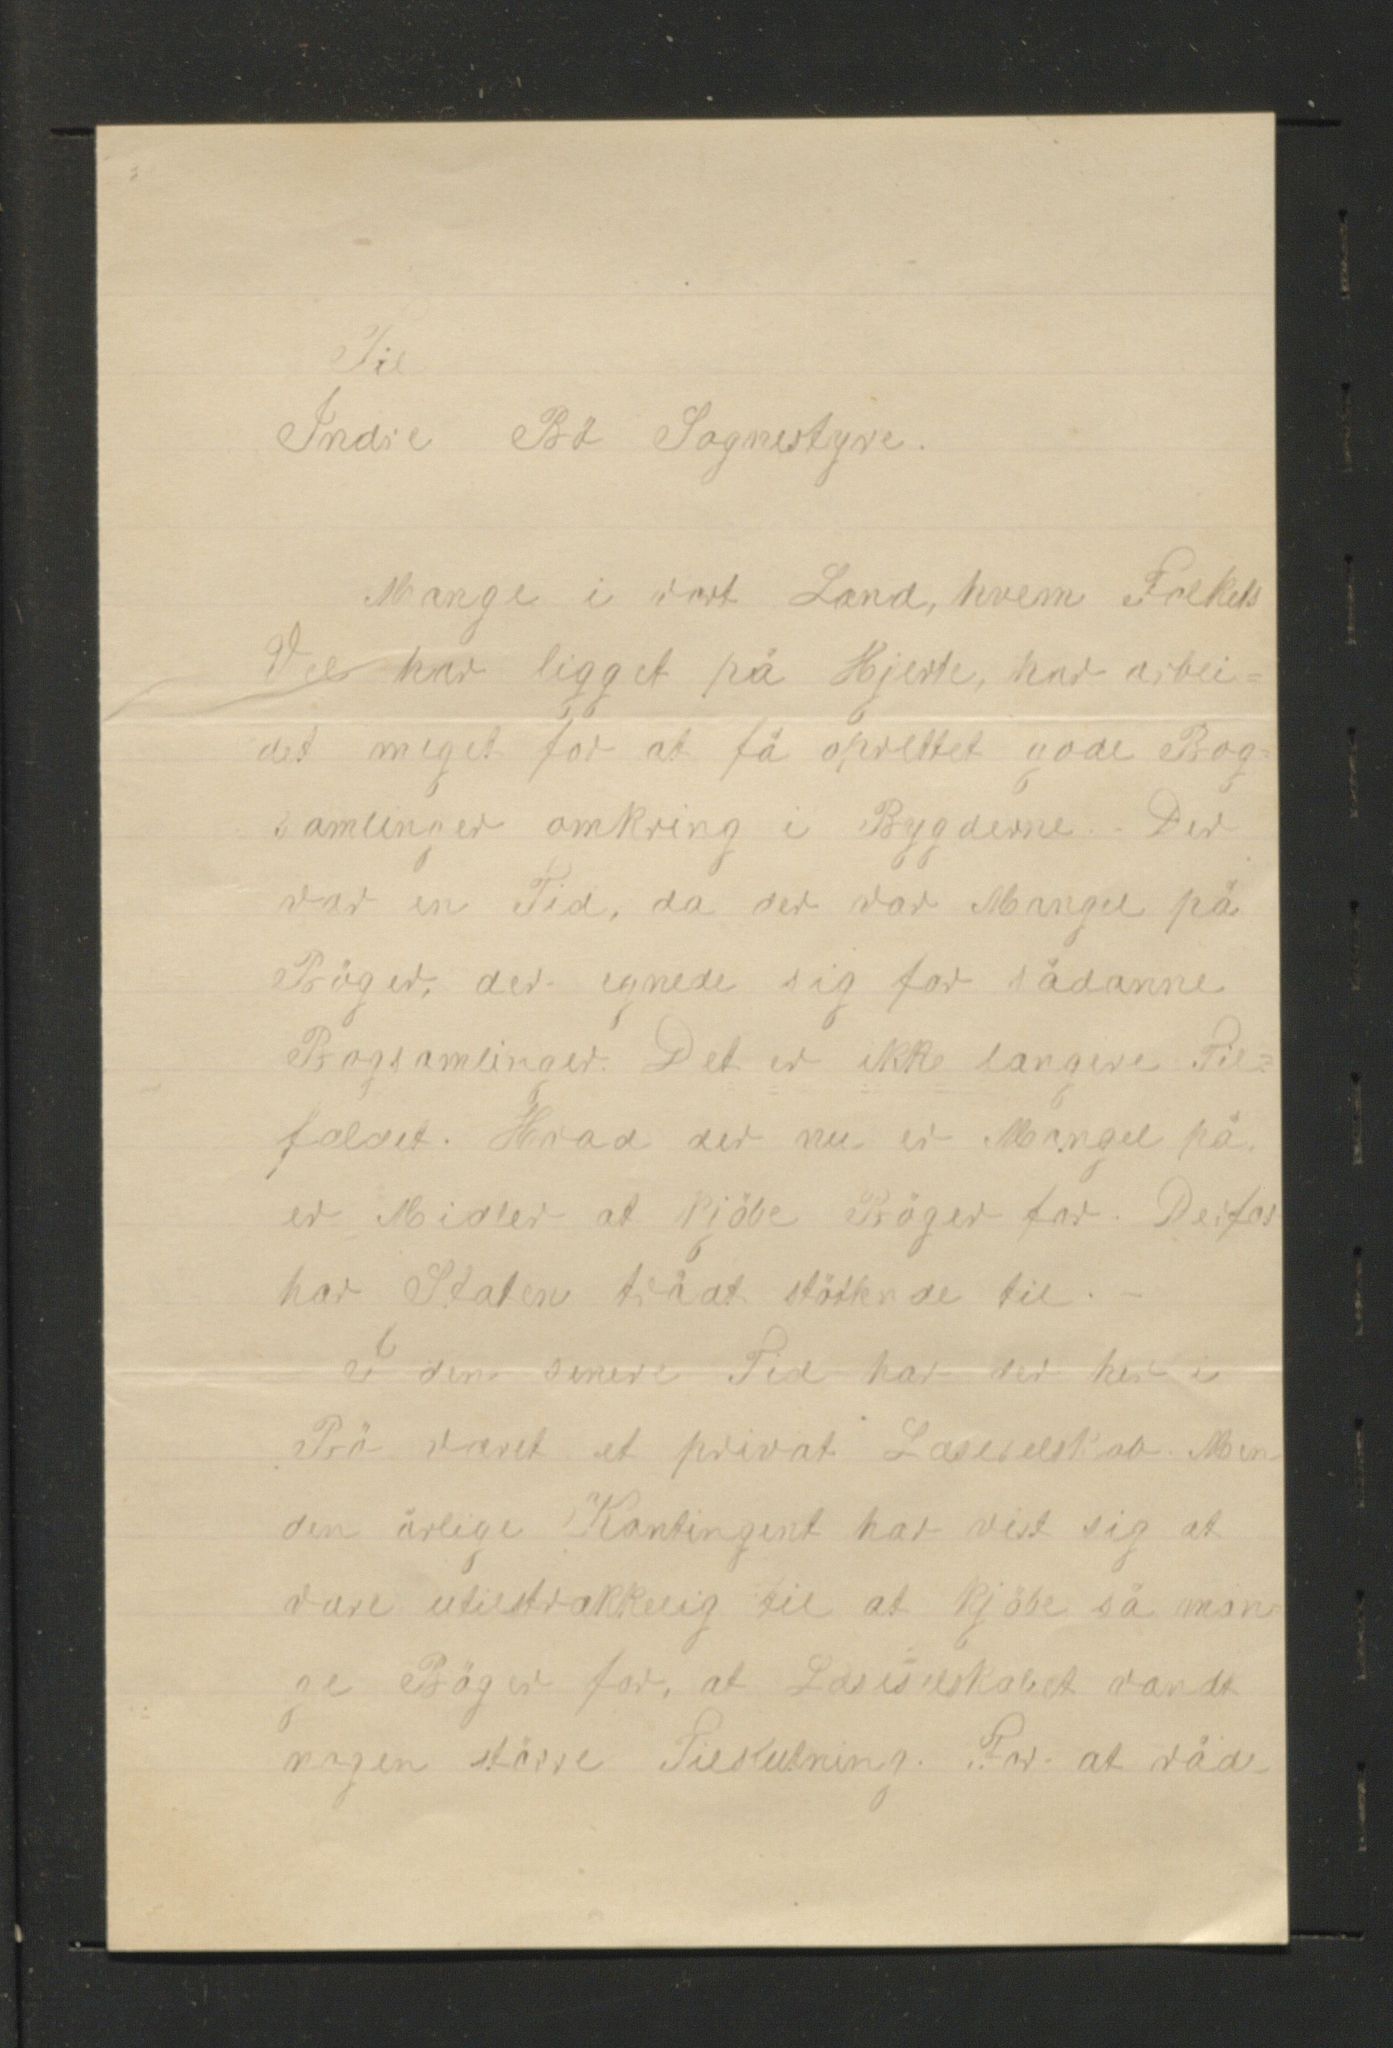 Til
Indre Bö Sognestyre.
Mange i vort Land, hvem Folkets
Vel har ligget på Hjerte, har arbei=
det meget for at få oprettet gode Bog=
samlinger omkring i Bygderne. - Der
var en Tid, da der var Mangel på
Böger, der egnede sig for sådanne
Bogsamlinger. Det er ikke længere Til=
fældet. Hvad der nu er Mangel på,
er Midler at kjöbe Böger for. Derfor
har Staten trådt stöttende til. -
I den senere Tid har der her i
Bö været et privat Læseselskab. Men
den årlige Kontingent har vist sig at
være utilstrækkelig til at kjöbe så man=
ge Böger for, at Læseselskabet vandt
nogen större Tilslutning. For at råd-